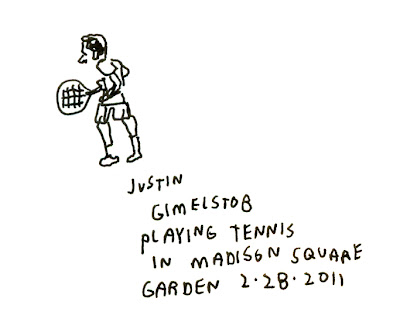 JUSTIN
GIMELSTOB
PLAYING TENNIS
IN MADISON SQUARE
GARDEN 2·28·2011